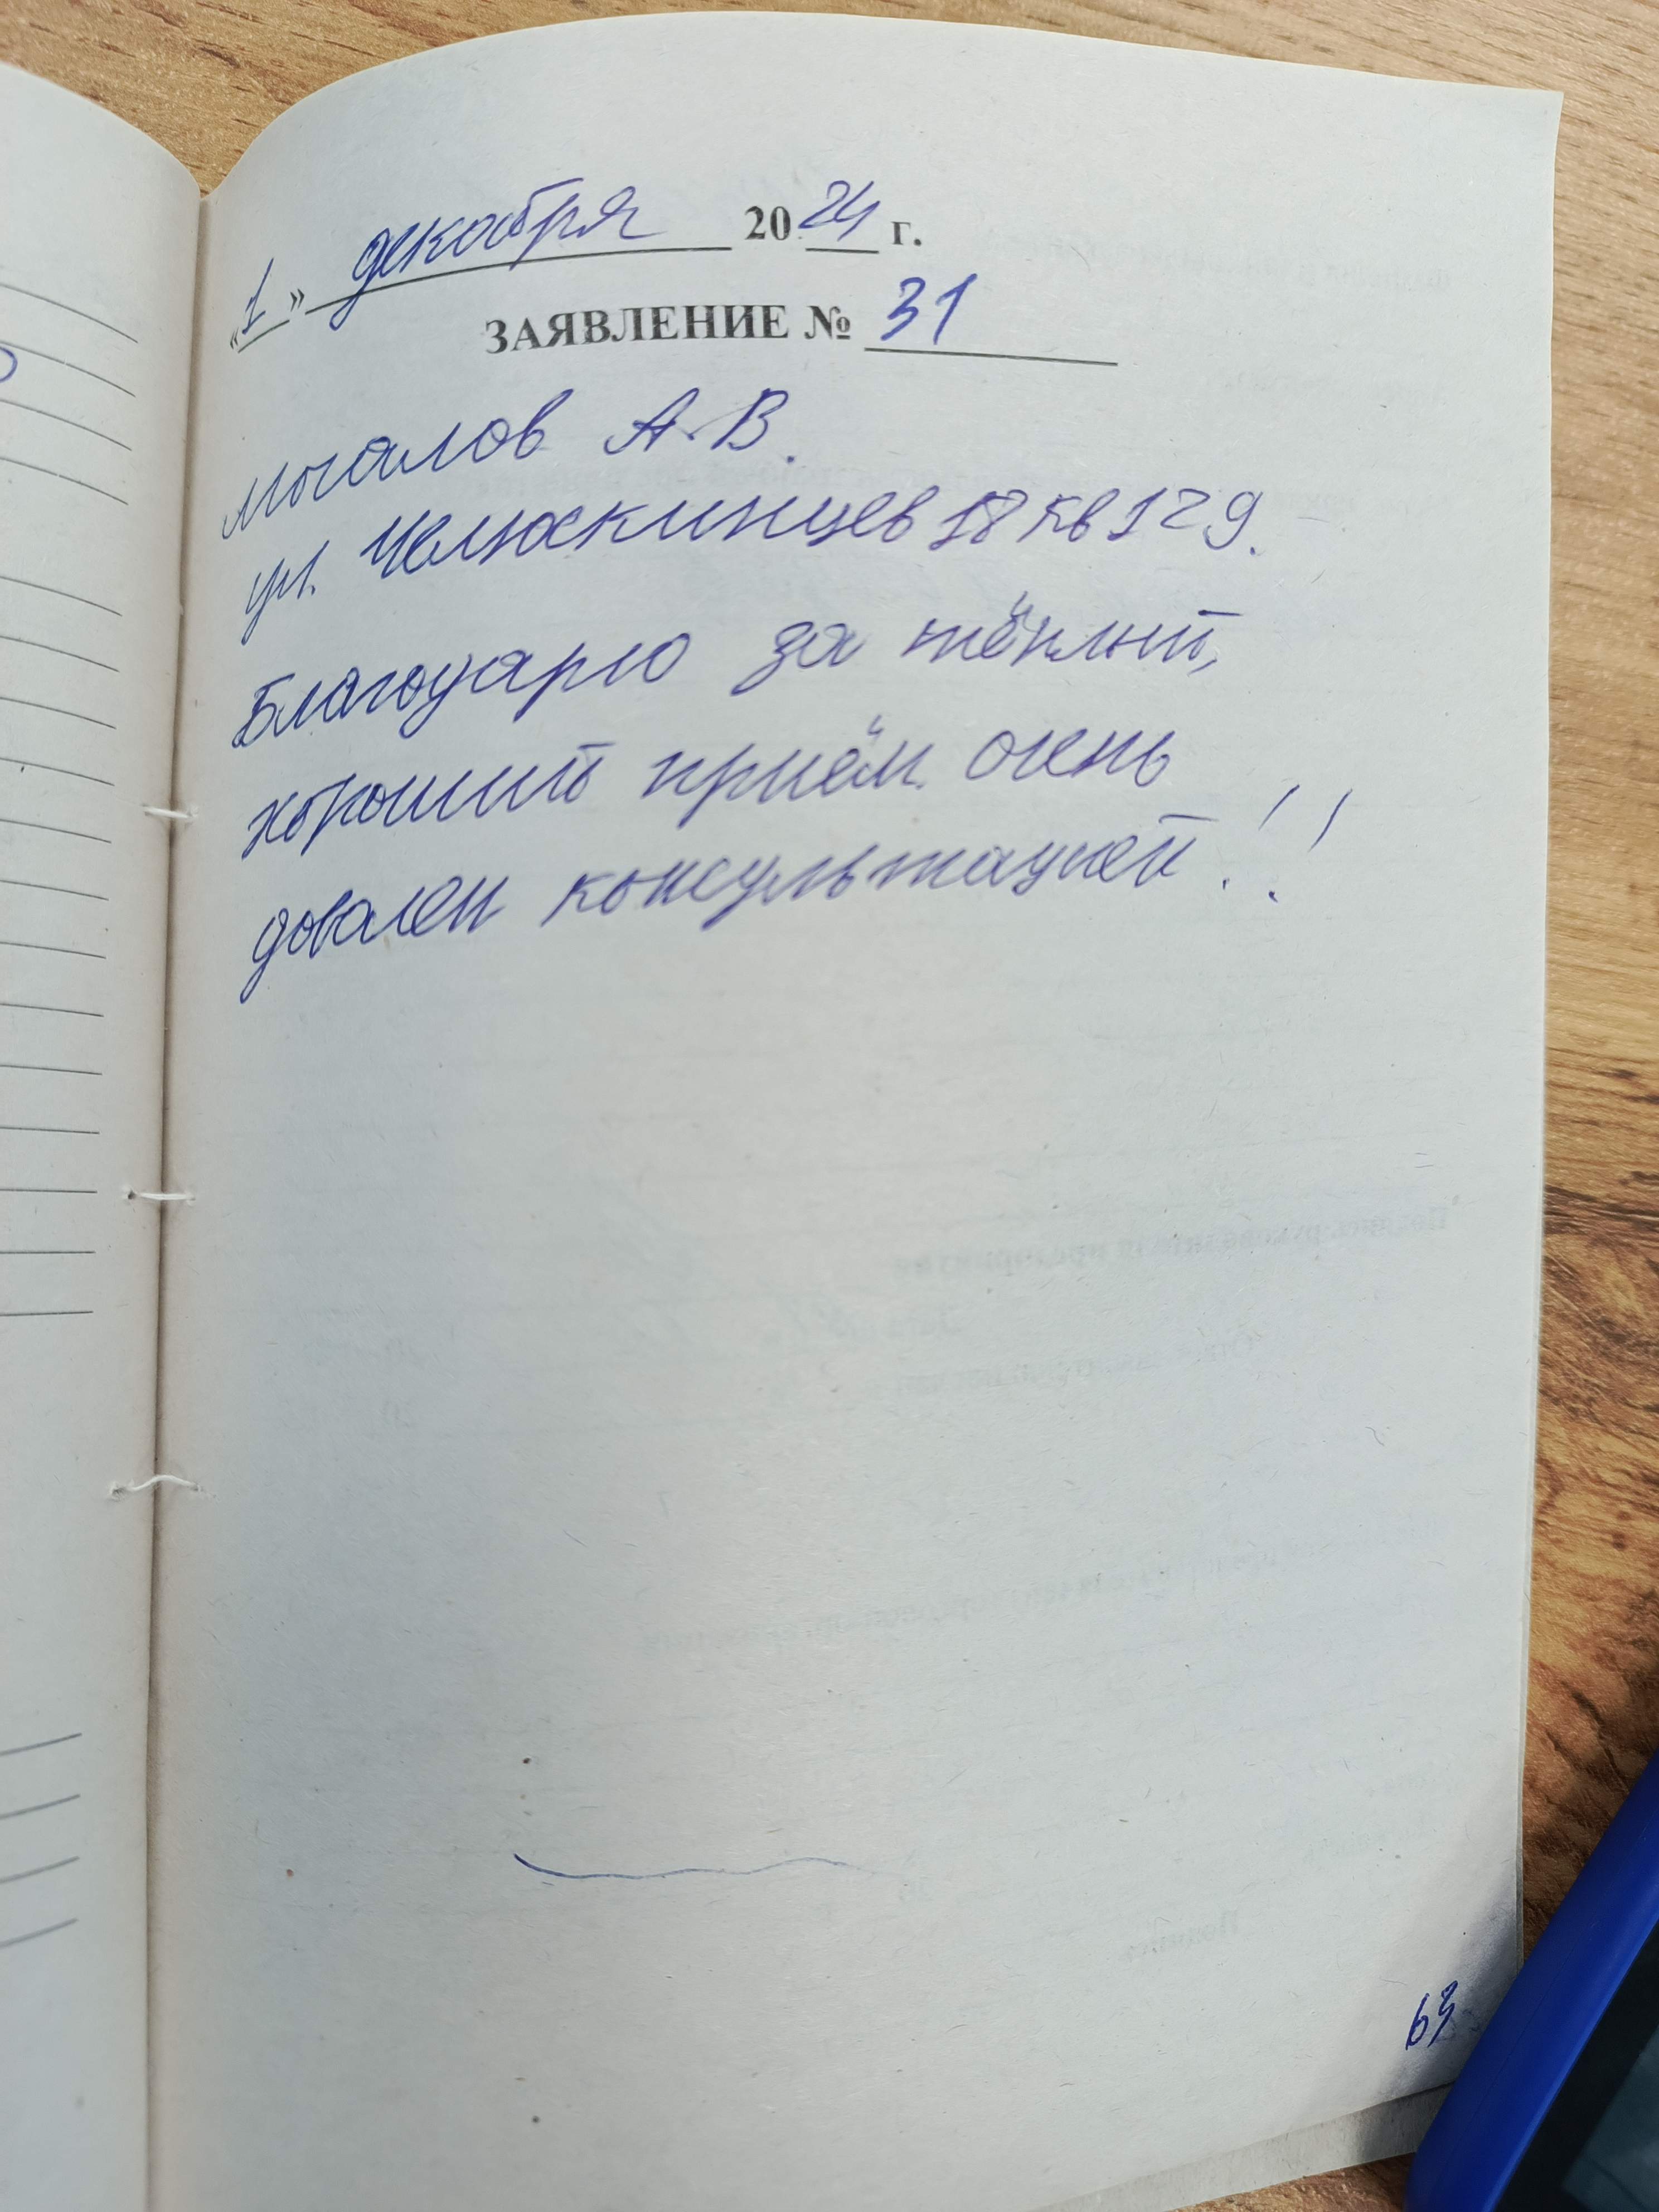 «1» декабря 2024 г.
ЗАЯВЛЕНИЕ № 31
Мочалов А.В.
ул. Челюскинцев 18 кв 129.
Благодарю за тёплый,
хороший приём. Очень
довален консультацией!!
63